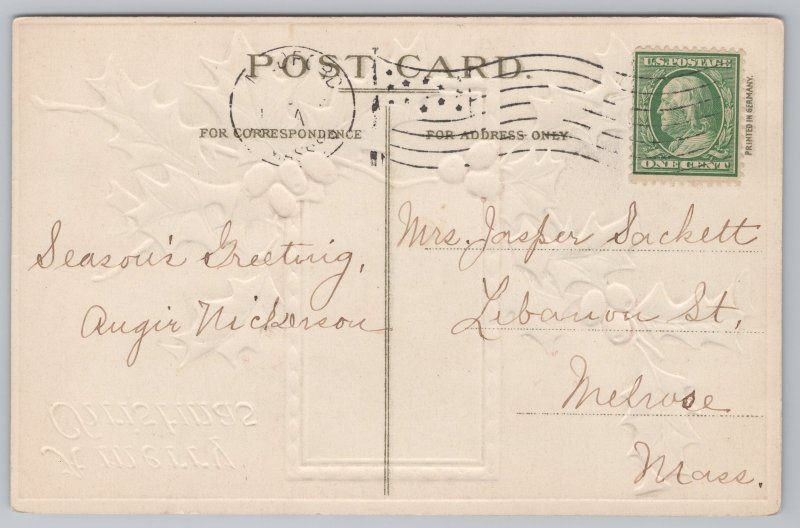 POST CARD.
FOR CORRESPONDENCE
FOR ADDRESS ONLY
U.S. POSTAGE
ONE CENT
PRINTED IN GERMANY.
Season's Greeting,
Angie Nickerson
Mrs. Jasper Sackett
Lebanon St,
Melrose
Mass.
A merry
Christmas